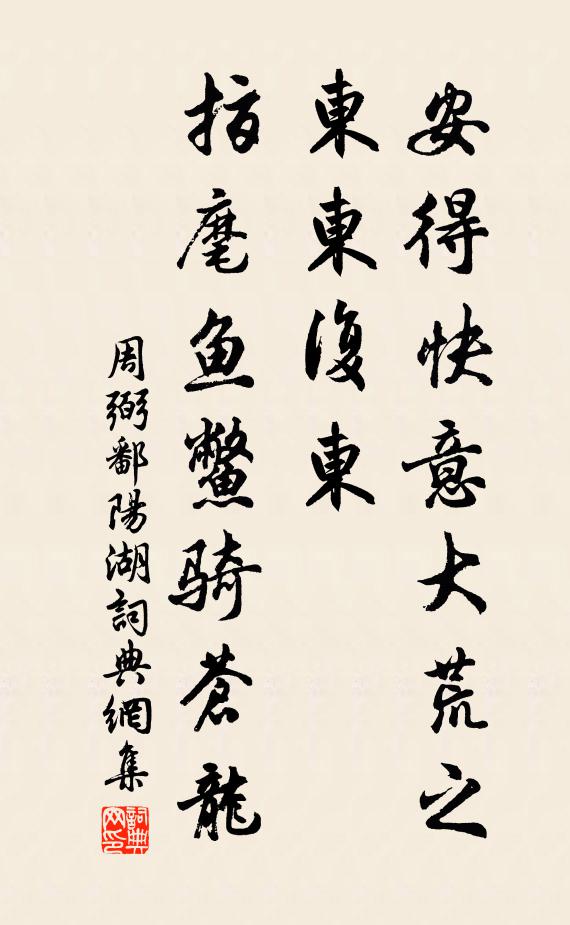 安得快意大荒之
東東東復東
指麾魚鱉騎蒼龍
周弼鄱陽湖詞典網集
詞典网印